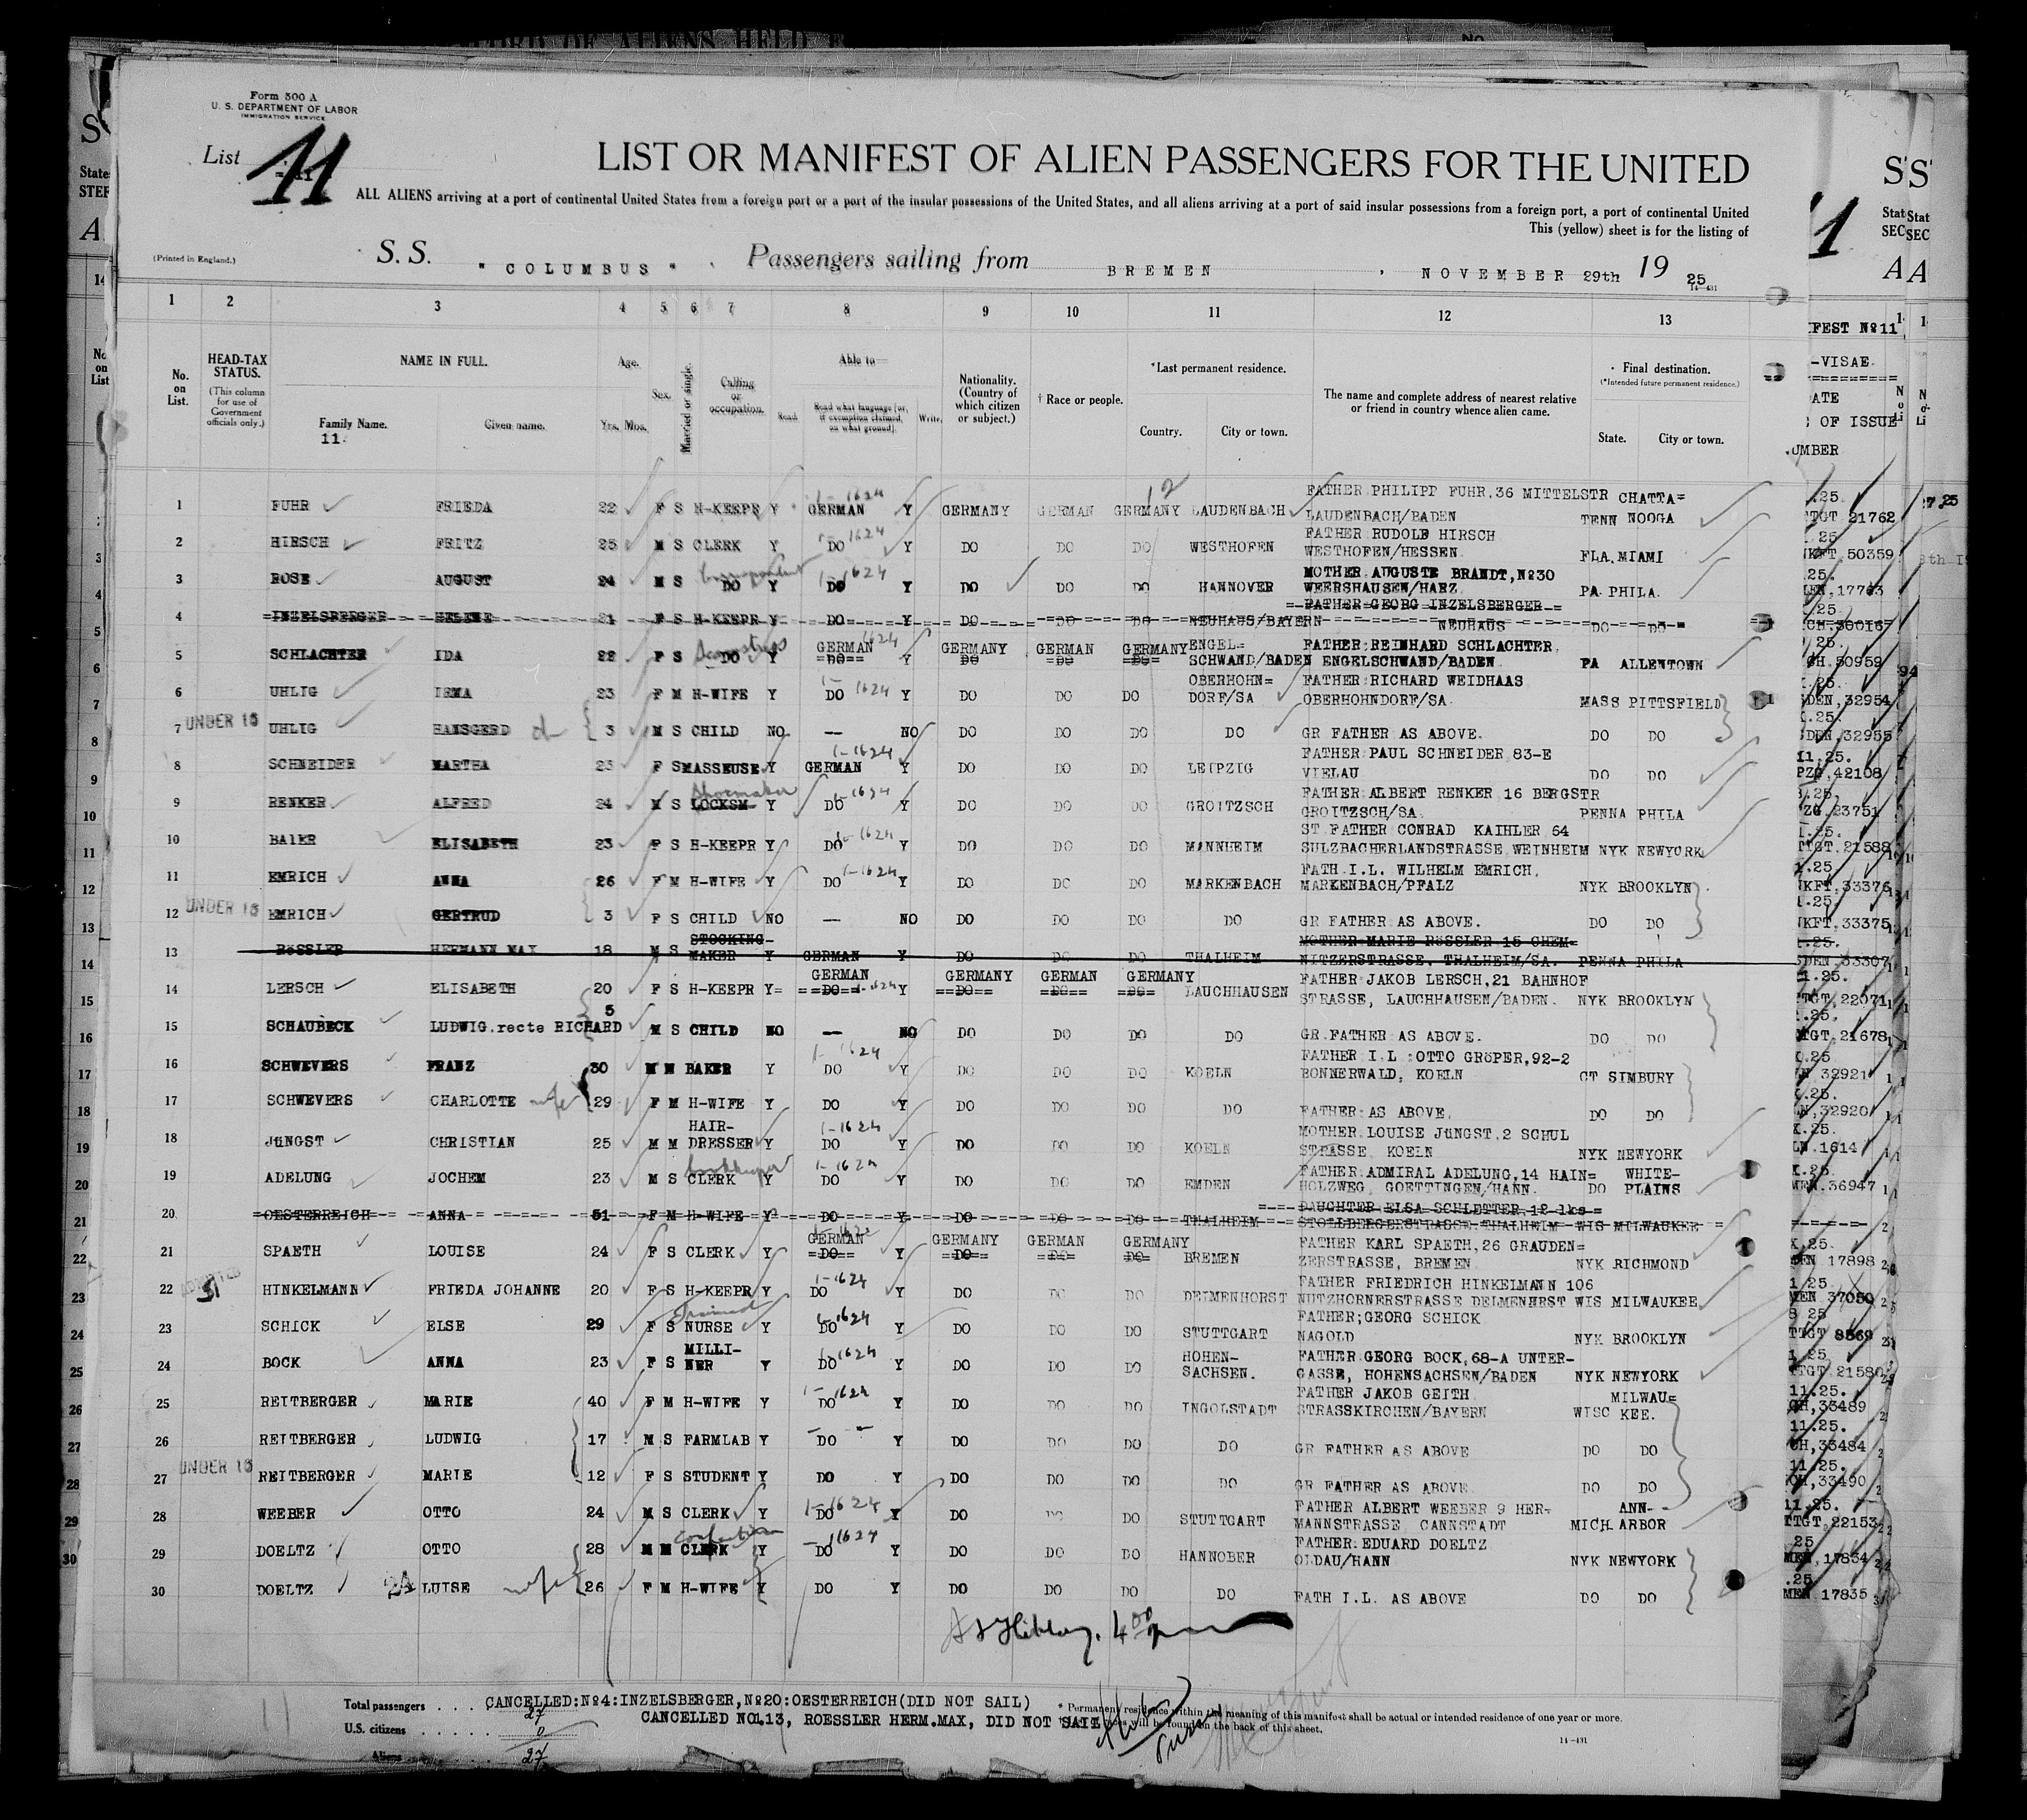 Form 500 A
U. S. DEPARTMENT OF LABOR
IMMIGRATION SERVICE
List 11
LIST OR MANIFEST OF ALIEN PASSENGERS FOR THE UNITED
ALL ALIENS arriving at a port of continental United States from a foreign port or a port of the insular possessions of the United States, and all aliens arriving at a port of said insular possessions from a foreign port, a port of continental United
This (yellow) sheet is for the listing of
(Printed in England.)
S. S. "COLUMBUS" Passengers sailing from BREMEN, NOVEMBER 29th 1925
14—431
1 2 3 4 5 6 7 8 9 10 11 12 13
No. on List.
HEAD-TAX STATUS. (This column for use of Government officials only.)
NAME IN FULL. Family Name. Given name.
11.
Age. Yrs. Mos.
Sex.
Married or single.
Calling or occupation.
Able to— Read. Read what language [or, if exemption claimed, on what ground]. Write.
Nationality. (Country of which citizen or subject.)
† Race or people.
*Last permanent residence. Country. City or town.
The name and complete address of nearest relative or friend in country whence alien came.
Final destination. (*Intended future permanent residence.) State. City or town.
1 FUHR FRIEDA 22 F S H-KEEPR Y GERMAN Y GERMANY GERMAN GERMANY LAUDENBACH FATHER PHILIPP FUHR,36 MITTELSTR LAUDENBACH/BADEN TENN CHATTA=NOOGA
2 HIRSCH FRITZ 25 M S CLERK Y DO Y DO DO DO WESTHOFEN FATHER RUDOLF HIRSCH WESTHOFEN/HESSEN FLA.MIAMI
3 ROSE AUGUST 24 M S DO Y DO Y DO DO DO HANNOVER MOTHER AUGUSTE BRANDT,No30 WEERSHAUSEN/HARZ PA PHILA.
4 INZELSBERGER HELENE 21 F S H-KEEPR Y DO Y DO DO DO NEUHAUS/BAYERN FATHER GEORG INZELSBERGER NEUHAUS DO DO
5 SCHLACHTER IDA 22 F S DO Y GERMAN Y GERMANY GERMAN GERMANY ENGEL=SCHWAND/BADEN FATHER REINHARD SCHLACHTER, ENGELSCHWAND/BADEN PA ALLENTOWN
6 UHLIG IRMA 23 F M H-WIFE Y DO Y DO DO DO OBERHOHN=DORF/SA FATHER RICHARD WEIDHAAS OBERHOHNDORF/SA. MASS PITTSFIELD
UNDER 16
7 UHLIG HANSGERD 3 M S CHILD NO — NO DO DO DO DO GR FATHER AS ABOVE. DO DO
8 SCHNEIDER MARTHA 23 F S MASSEUSE Y GERMAN Y DO DO DO LEIPZIG FATHER PAUL SCHNEIDER 83-E VIELAU DO DO
9 RENKER ALFRED 24 M S LOCKSM- Shoemaker Y DO Y DO DO DO GROITZSCH FATHER ALBERT RENKER 16 BERGSTR GROITZSCH/SA. PENNA PHILA
10 BAIER ELISABETH 23 F S H-KEEPR Y DO Y DO DO DO MANNHEIM ST FATHER CONRAD KAIHLER 64 SULZBACHERLANDSTRASSE WEINHEIM NYK NEWYORK
11 EMRICH ANNA 26 F M H-WIFE Y DO Y DO DO DO MARKENBACH FATH I.L. WILHELM EMRICH, MARKENBACH/PFALZ NYK BROOKLYN
UNDER 16
12 EMRICH GERTRUD 3 F S CHILD NO — NO DO DO DO DO GR FATHER AS ABOVE. DO DO
13 RÖSSLER HERMANN MAX 18 M S STOCKING-MAKER Y GERMAN Y DO DO DO THALHEIM MOTHER MARIE RÖSSLER 15 CHEM=NITZERSTRASSE, THALHEIM/SA. PENNA PHILA
14 LERSCH ELISABETH 20 F S H-KEEPR Y GERMAN Y GERMANY GERMAN GERMANY LAUCHHAUSEN FATHER JAKOB LERSCH,21 BAHNHOF STRASSE, LAUCHHAUSEN/BADEN. NYK BROOKLYN
15 SCHAUBECK LUDWIG.recte RICHARD 5 M S CHILD NO — NO DO DO DO DO GR.FATHER AS ABOVE. DO DO
16 SCHWEVERS FRANZ 30 M M BAKER Y DO Y DO DO DO KOELN FATHER I.L :OTTO GRÖPER,92-2 BONNERWALD, KOELN CT SIMBURY
17 SCHWEVERS CHARLOTTE wife 29 F M H-WIFE Y DO Y DO DO DO DO FATHER AS ABOVE. DO DO
18 JÜNGST CHRISTIAN 25 M M HAIR-DRESSER Y DO Y DO DO DO KOELN MOTHER LOUISE JÜNGST,2 SCHUL STRASSE KOELN NYK NEWYORK
19 ADELUNG JOCHEM 23 M S CLERK bookkeeper Y DO Y DO DO DO EMDEN FATHER ADMIRAL ADELUNG,14 HAIN=HOLZWEG, GOETTINGEN/HANN. DO WHITE-PLAINS
20 OESTERREICH ANNA 51 F M H-WIFE Y DO Y DO DO DO THALHEIM DAUGHTER ELSA SCHLETTER 12 lks STOLLBERGERSTRASSE THALHEIM WIS MILWAUKEE
21 SPAETH LOUISE 24 F S CLERK Y GERMAN Y GERMANY GERMAN GERMANY BREMEN FATHER KARL SPAETH,26 GRAUDEN=ZERSTRASSE, BREMEN NYK RICHMOND
22 HINKELMANN FRIEDA JOHANNE 20 F S H-KEEPR Y DO Y DO DO DO DELMENHORST FATHER FRIEDRICH HINKELMANN 106 NUTZHORNERSTRASSE DELMENHRST WIS MILWAUKEE
23 SCHICK ELSE 29 F S Trained NURSE Y DO Y DO DO DO STUTTGART FATHER;GEORG SCHICK NAGOLD NYK BROOKLYN
24 BOCK ANNA 23 F S MILLI-NER Y DO Y DO DO DO HOHEN-SACHSEN. FATHER GEORG BOCK,68-A UNTER-GASSE, HOHENSACHSEN/BADEN NYK NEWYORK
25 REITBERGER MARIE 40 F M H-WIFE Y DO Y DO DO DO INGOLSTADT FATHER JAKOB GEITH STRASSKIRCHEN/BAYERN WISC MILWAU=KEE.
26 REITBERGER LUDWIG 17 M S FARMLAB Y DO Y DO DO DO DO GR FATHER AS ABOVE DO DO
UNDER 16
27 REITBERGER MARIE 12 F S STUDENT Y DO Y DO DO DO DO GR FATHER AS ABOVE DO DO
28 WEEBER OTTO 24 M S CLERK Y DO Y DO DO DO STUTTGART FATHER ALBERT WEEBER 9 HER-MANNSTRASSE CANNSTADT MICH ANN-ARBOR
29 DOELTZ OTTO 28 M M CLERK Y DO Y DO DO DO HANNOBER FATHER EDUARD DOELTZ OLDAU/HANN NYK NEWYORK
30 DOELTZ LUISE wife 26 F M H-WIFE Y DO Y DO DO DO DO FATH I.L. AS ABOVE DO DO
Total passengers . . . . 27
CANCELLED:No4:INZELSBERGER,No20:OESTERREICH(DID NOT SAIL)
U.S. citizens . . . . . 0
CANCELLED NO.13, ROESSLER HERM.MAX, DID NOT SAIL
Aliens 27
* Permanent residence within the meaning of this manifest shall be actual or intended residence of one year or more.
will be found on the back of this sheet.
14—431